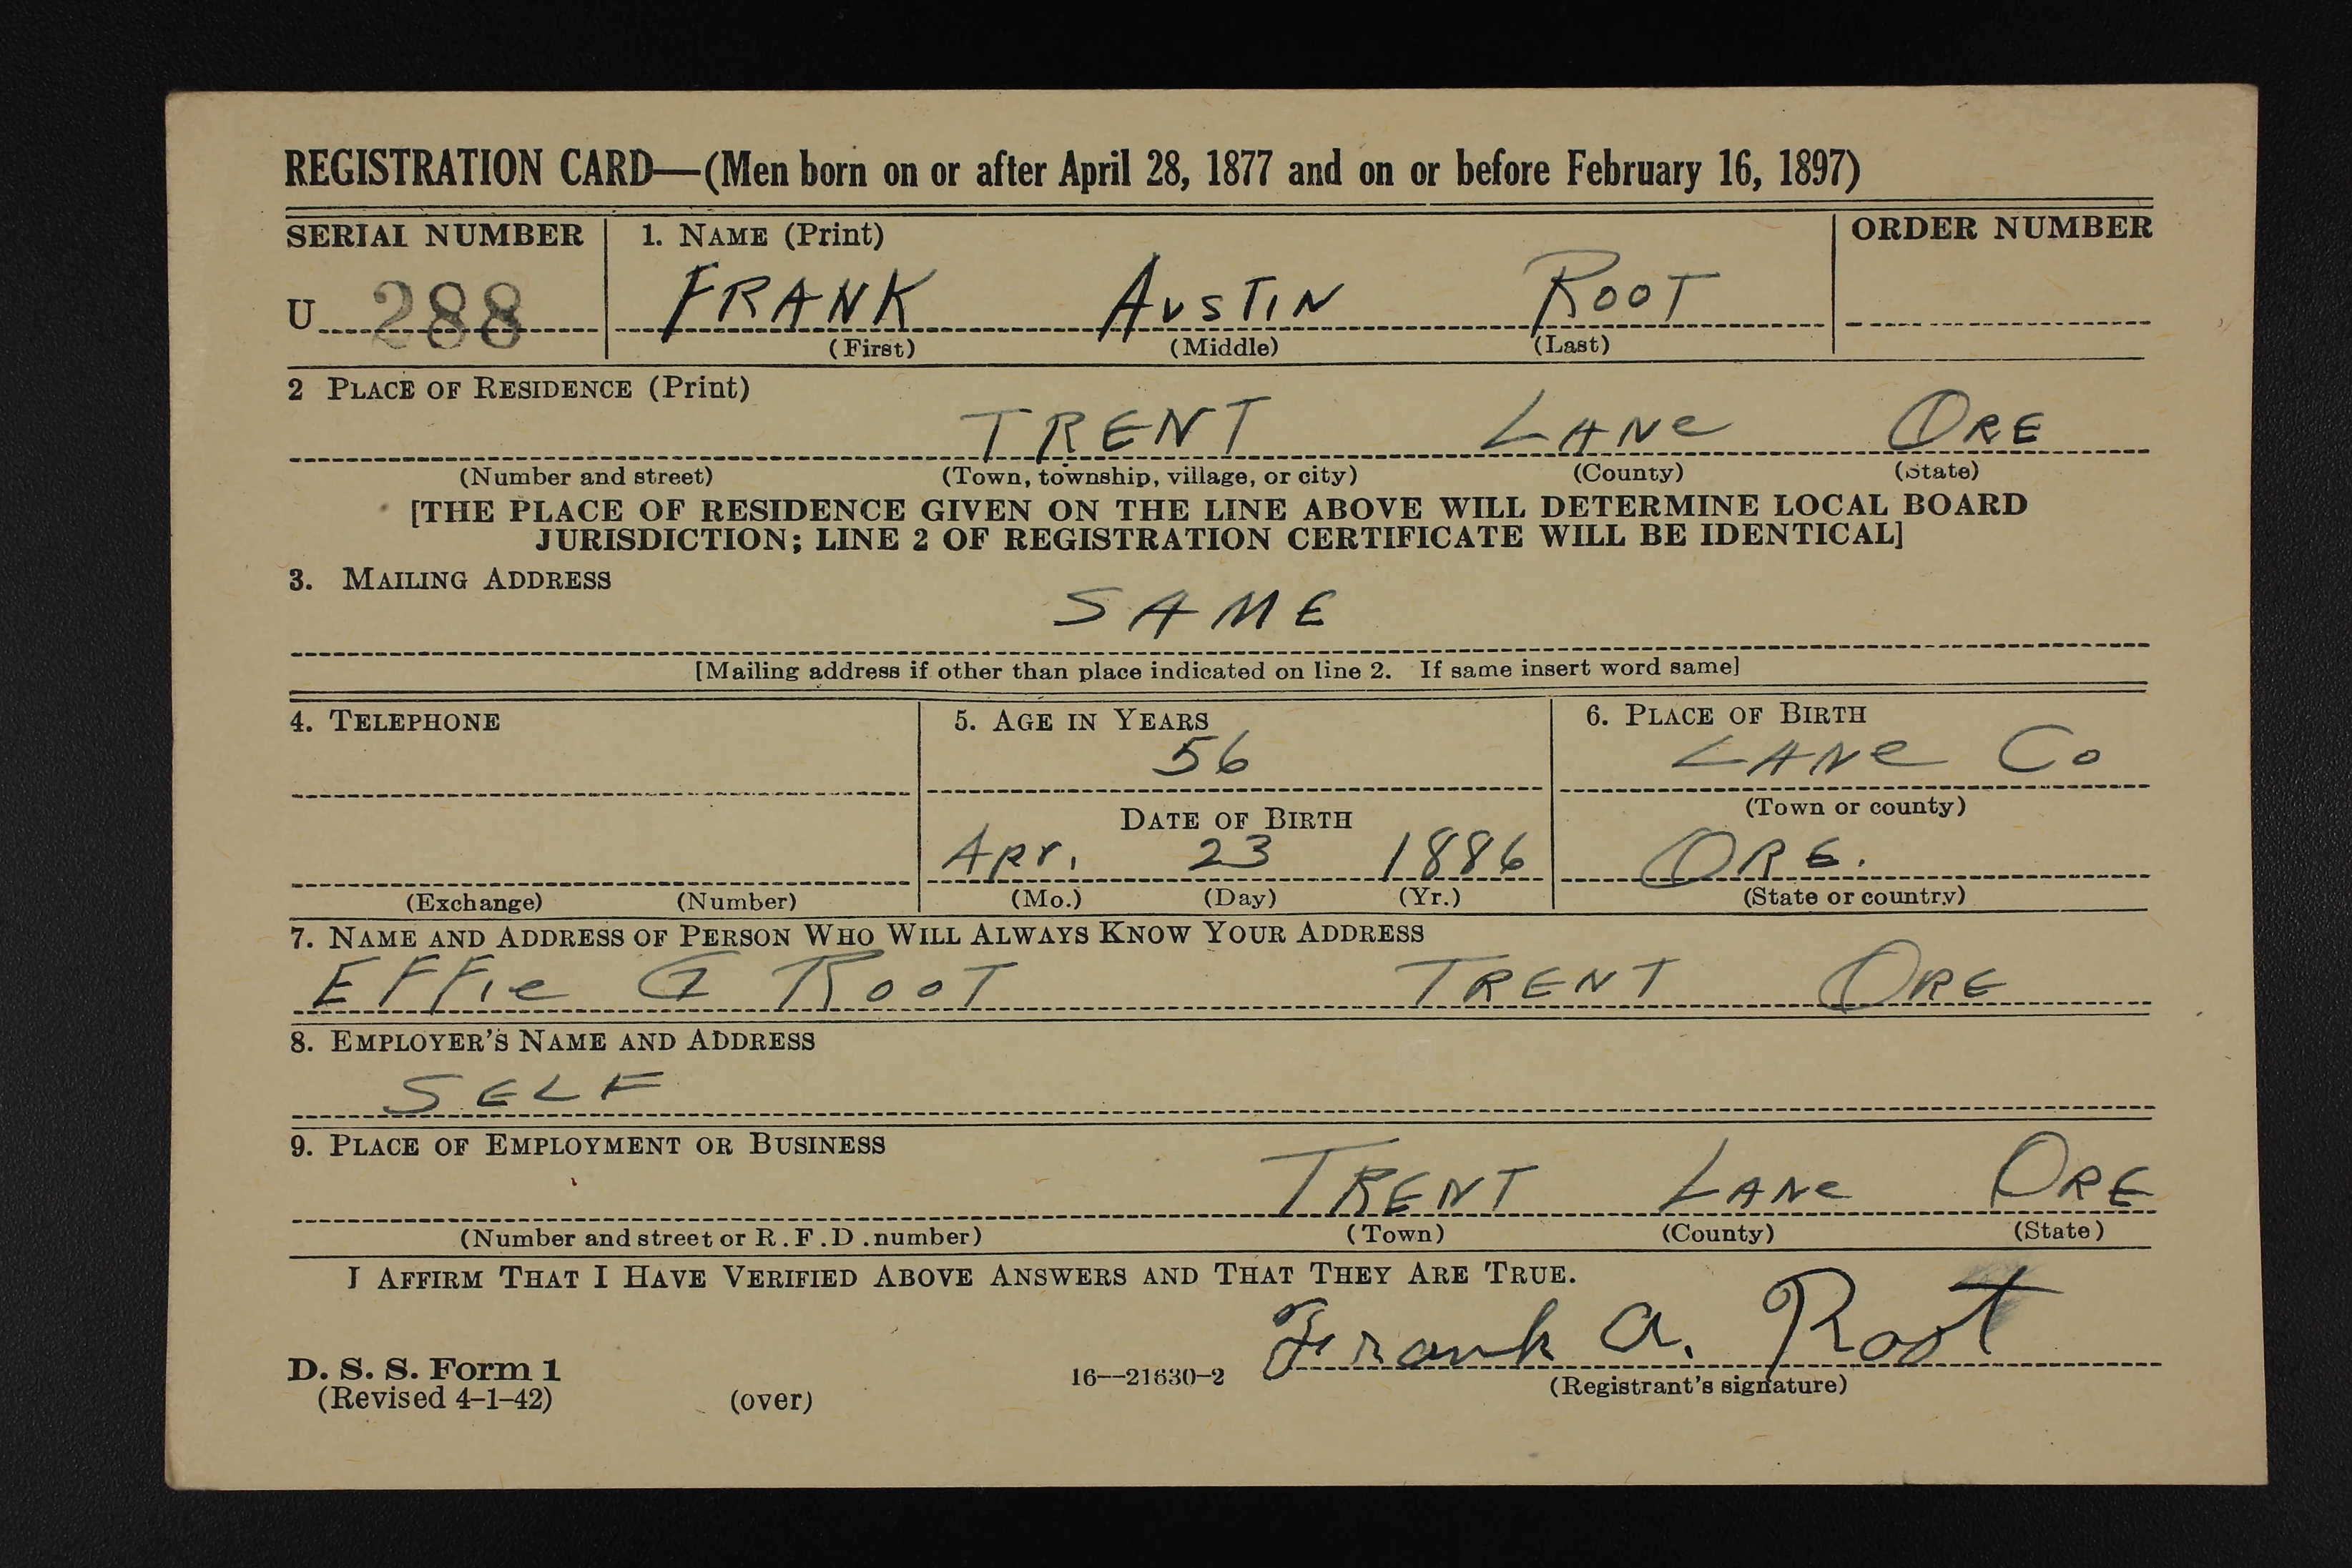 REGISTRATION CARD—(Men born on or after April 28, 1877 and on or before February 16, 1897)
SERIAL NUMBER 1. NAME (Print) ORDER NUMBER
U 288 FRANK AUSTIN ROOT
(First) (Middle) (Last)
2 PLACE OF RESIDENCE (Print)
TRENT LANe ORE
(Number and street) (Town, township, village, or city) (County) (State)
[THE PLACE OF RESIDENCE GIVEN ON THE LINE ABOVE WILL DETERMINE LOCAL BOARD
JURISDICTION; LINE 2 OF REGISTRATION CERTIFICATE WILL BE IDENTICAL]
3. MAILING ADDRESS
SAME
[Mailing address if other than place indicated on line 2. If same insert word same]
4. TELEPHONE 5. AGE IN YEARS 6. PLACE OF BIRTH
56 LANe Co
DATE OF BIRTH (Town or county)
Apr. 23 1886 ORE.
(Exchange) (Number) (Mo.) (Day) (Yr.) (State or country)
7. NAME AND ADDRESS OF PERSON WHO WILL ALWAYS KNOW YOUR ADDRESS
EFFie G ROOT TRENT ORE
8. EMPLOYER'S NAME AND ADDRESS
SELF
9. PLACE OF EMPLOYMENT OR BUSINESS
TRENT LANe ORE
(Number and street or R.F.D. number) (Town) (County) (State)
I AFFIRM THAT I HAVE VERIFIED ABOVE ANSWERS AND THAT THEY ARE TRUE.
Frank A. Root
D. S. S. Form 1 16—21630-2 (Registrant's signature)
(Revised 4-1-42) (over)